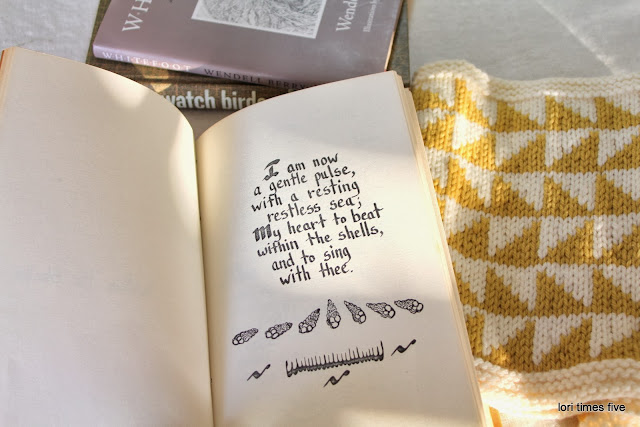 WHITEFOOT WENDELL
watch
I am now
a gentle pulse,
with a resting
restless sea;
My heart to beat
within the shells,
and to sing
with thee.
lori times five